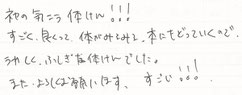 初の気こう体けん!!!
すごく、良くって、体がみるみる、本にもどっていくので、
うれしく、ふしぎな体けんでした。
また、よろしくお願いします、すごい!!!